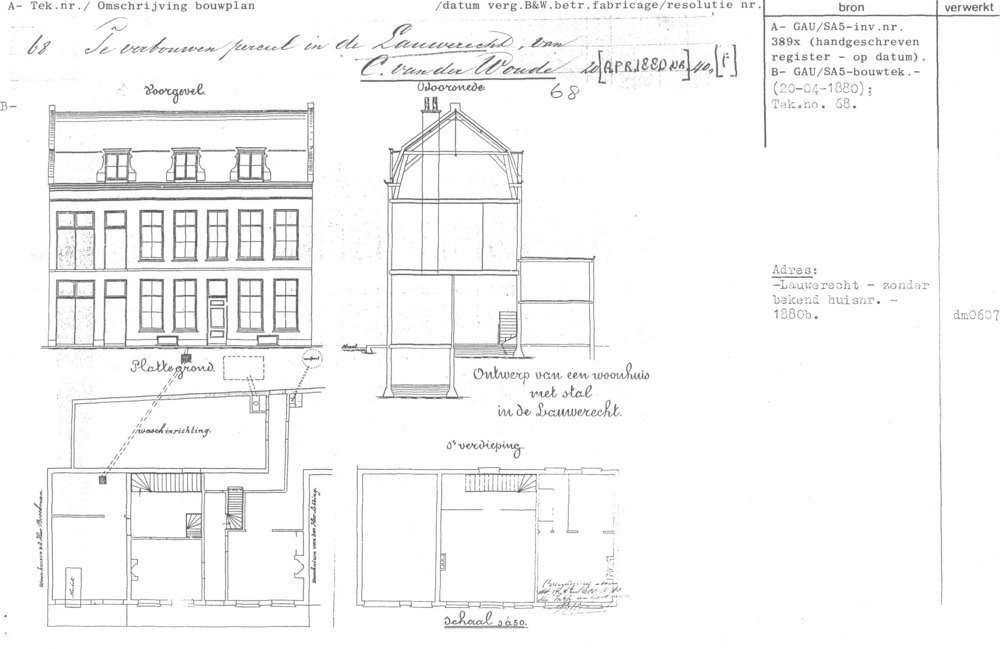 A- Tek.nr./ Omschrijving bouwplan /datum verg.B&W.betr.fabricage/resolutie nr. bron verwerkt
68 Te verbouwen perceel in de Lauwerecht, van
C. van der Woude 20 [APR.1880 NR.] 40.
68
A- GAU/SA5-inv.nr.
389x (handgeschreven
register - op datum).
B- GAU/SA5-bouwtek.-
(20-04-1880);
Tek.no. 68.
B-
Voorgevel.
Doorsnede.
Adres:
-Lauwerecht - zonder
bekend huisnr. -
1880b.
dm0607
Straat
Plattegrond.
Ontwerp van een woonhuis
met stal
in de Lauwerecht.
waschinrichting.
1e verdieping.
Schaal 1 à 50.